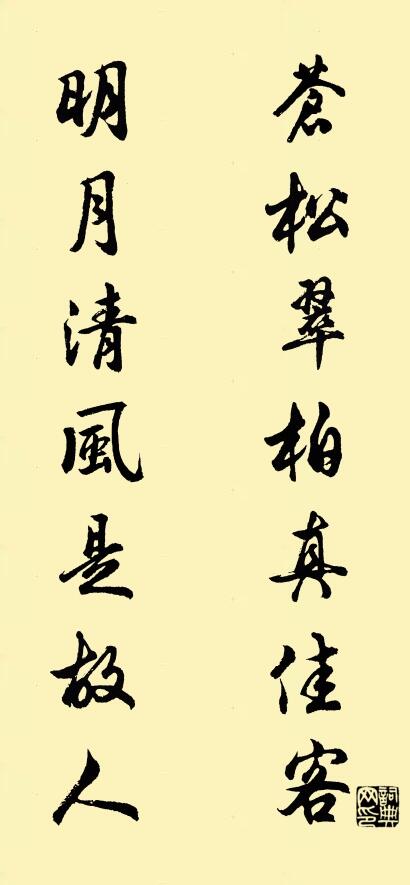 蒼松翠柏真佳客
明月清風是故人
詞典网印